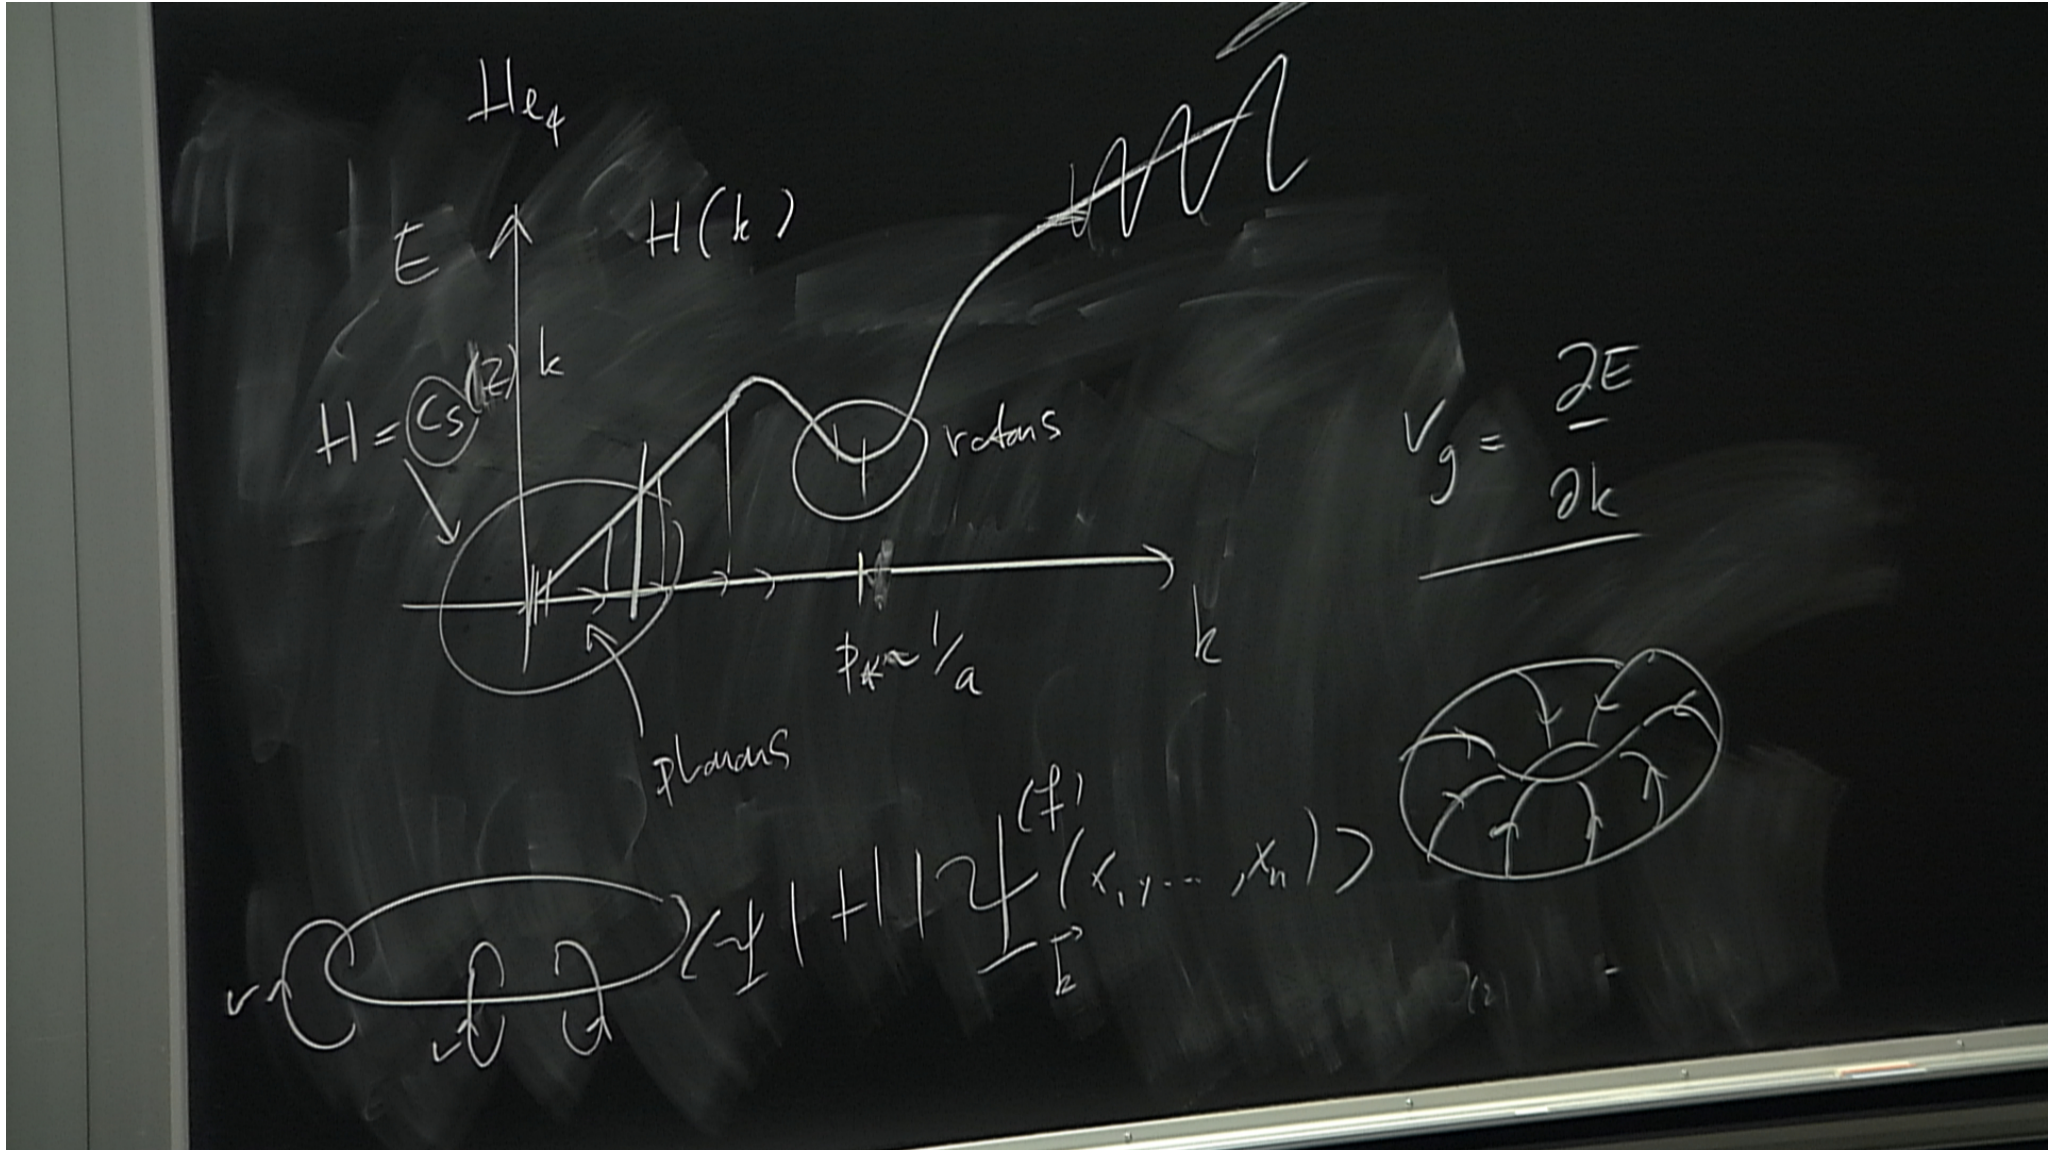 He₄
E
H(k)
H = c_s k
rotons
v_g = ∂E/∂k
p_* ~ 1/a
k
phonons
⟨Ψ|H|Ψ_k⃗^(f)(x₁, ..., x_n)⟩